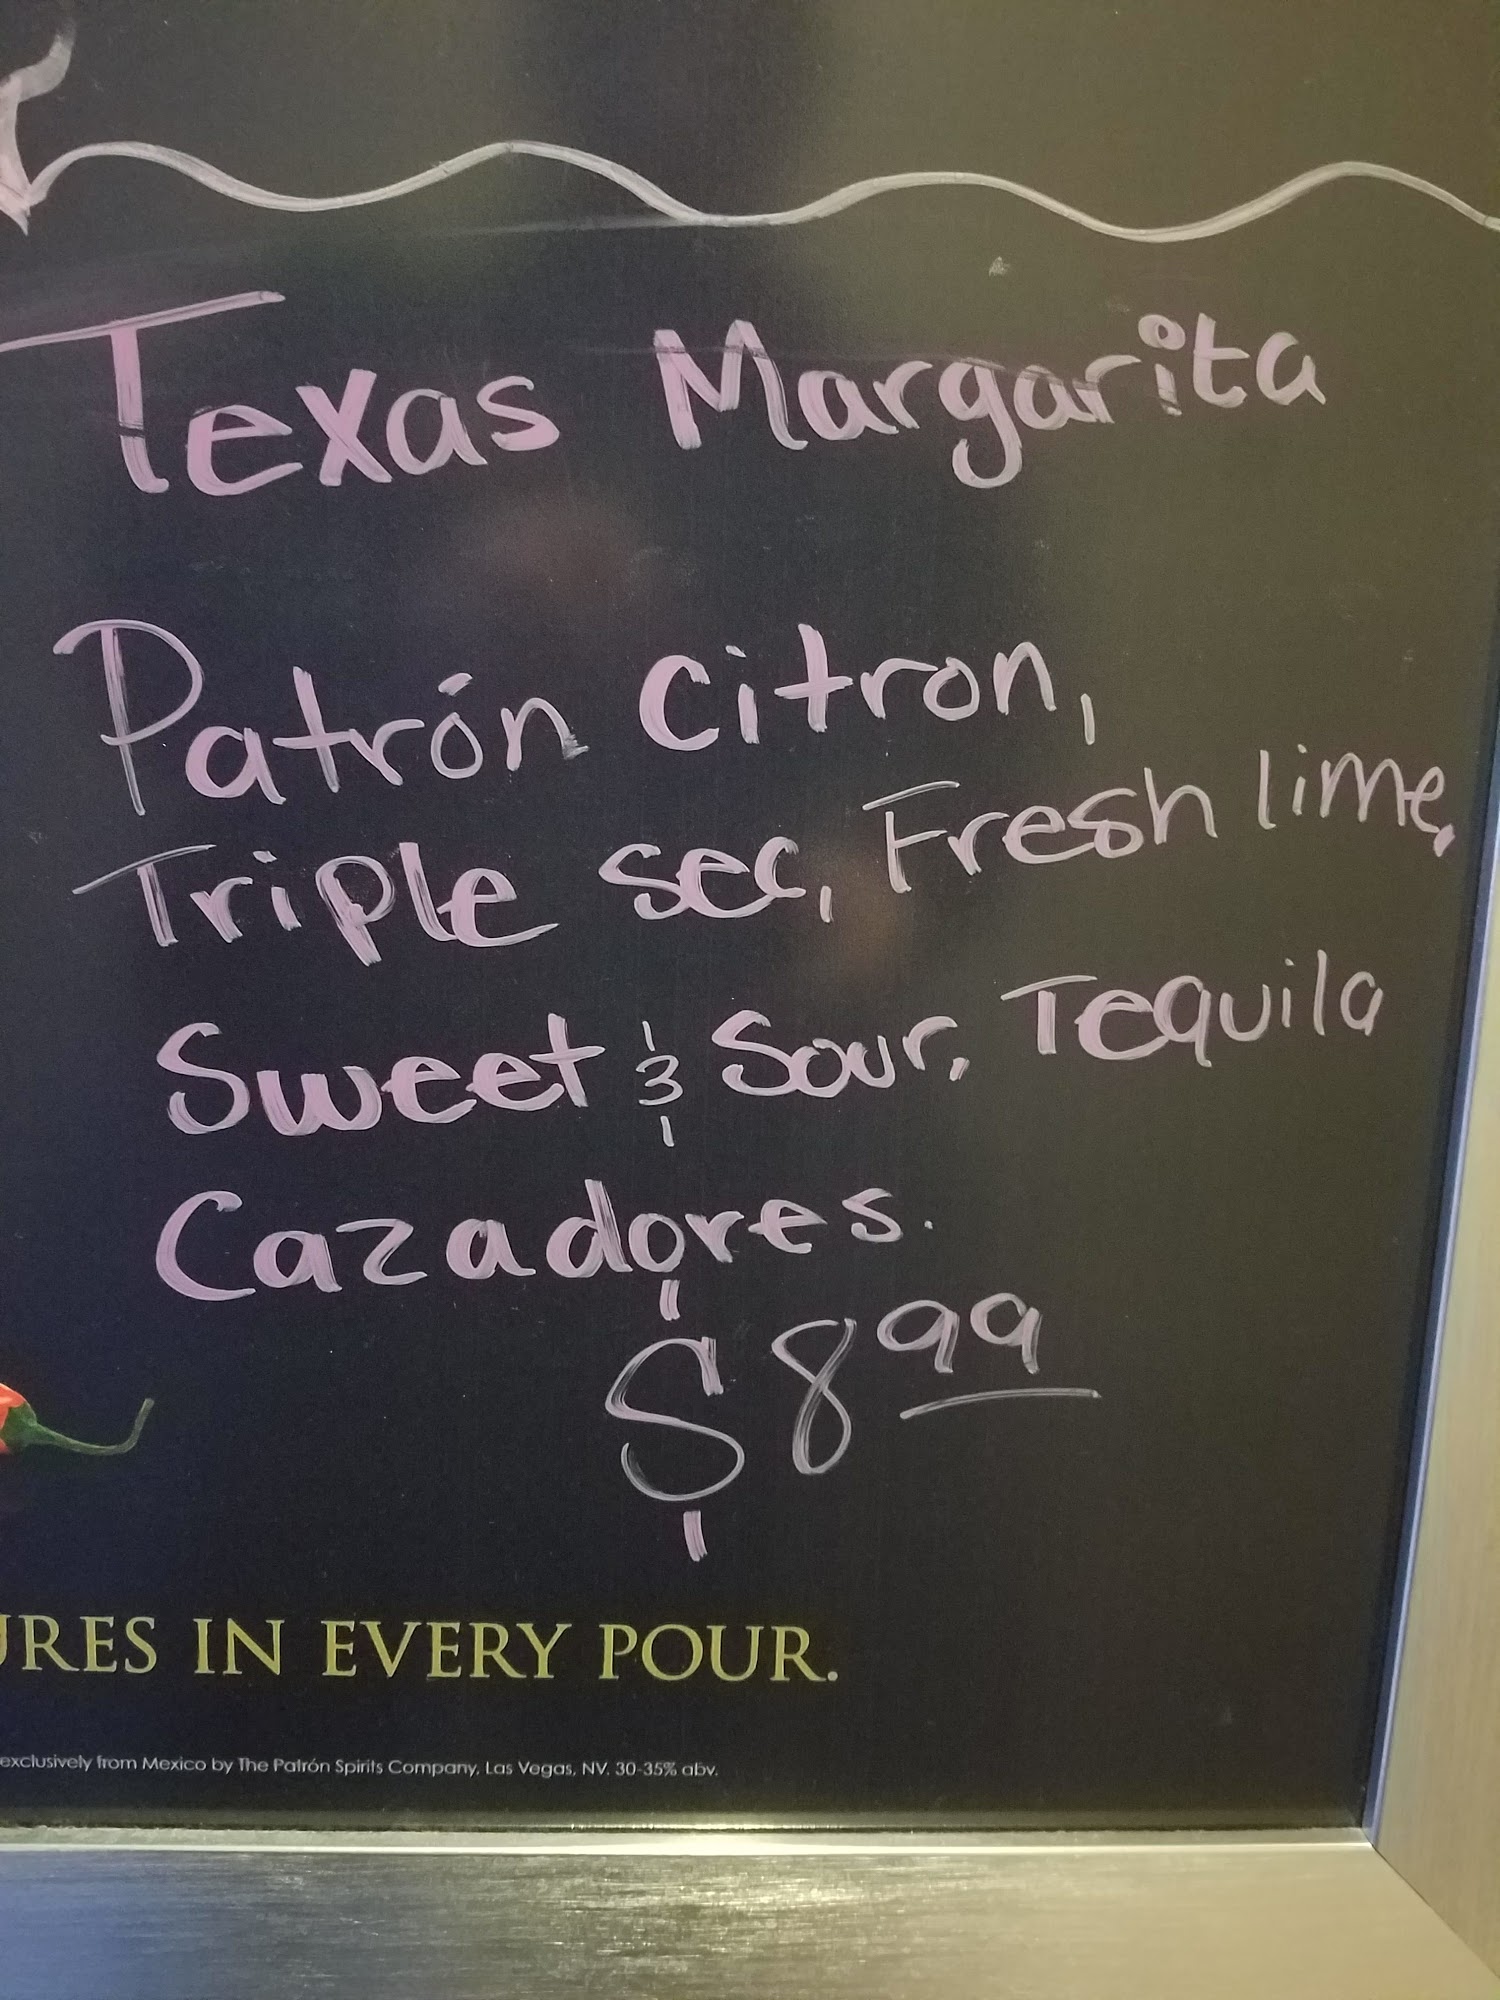 Texas Margarita
Patrón Citron,
Triple sec, Fresh lime,
Sweet & Sour, Tequila
Cazadores.
$8.99
IN EVERY POUR.
exclusively from Mexico by The Patrón Spirits Company, Las Vegas, NV. 30-35% abv.